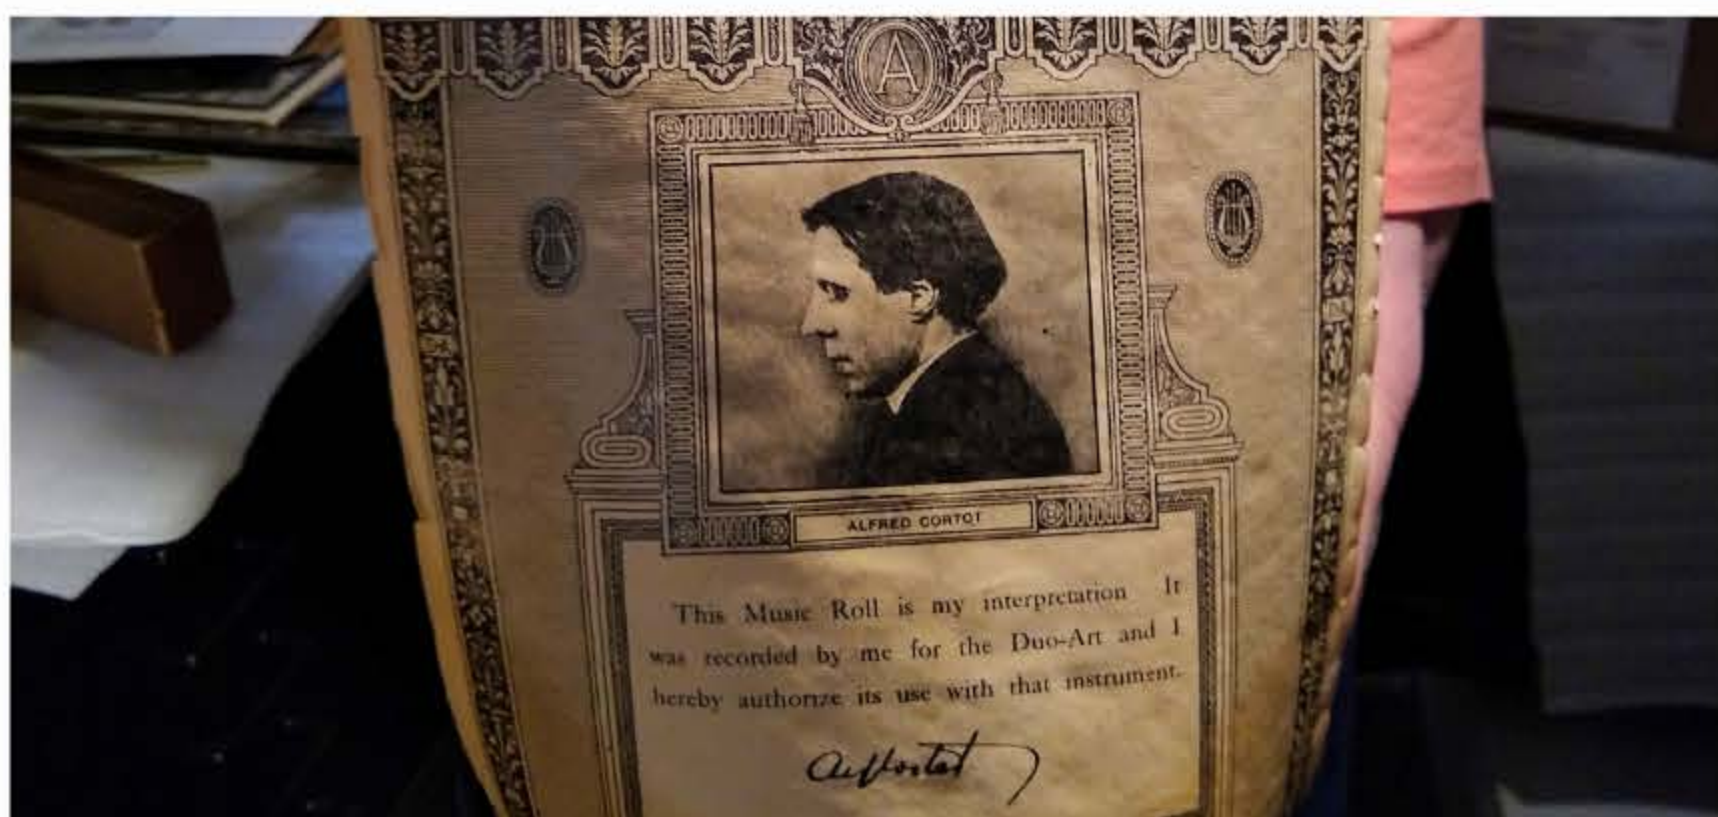 A
ALFRED CORTOT
This Music Roll is my interpretation It
was recorded by me for the Duo-Art and I
hereby authorize its use with that instrument.